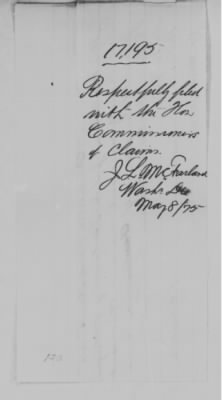 17,195
Respectfully filed
with the Hon
Commissioners
of Claims.
J L McFarland
Wash. D.C.
May 8/75
120